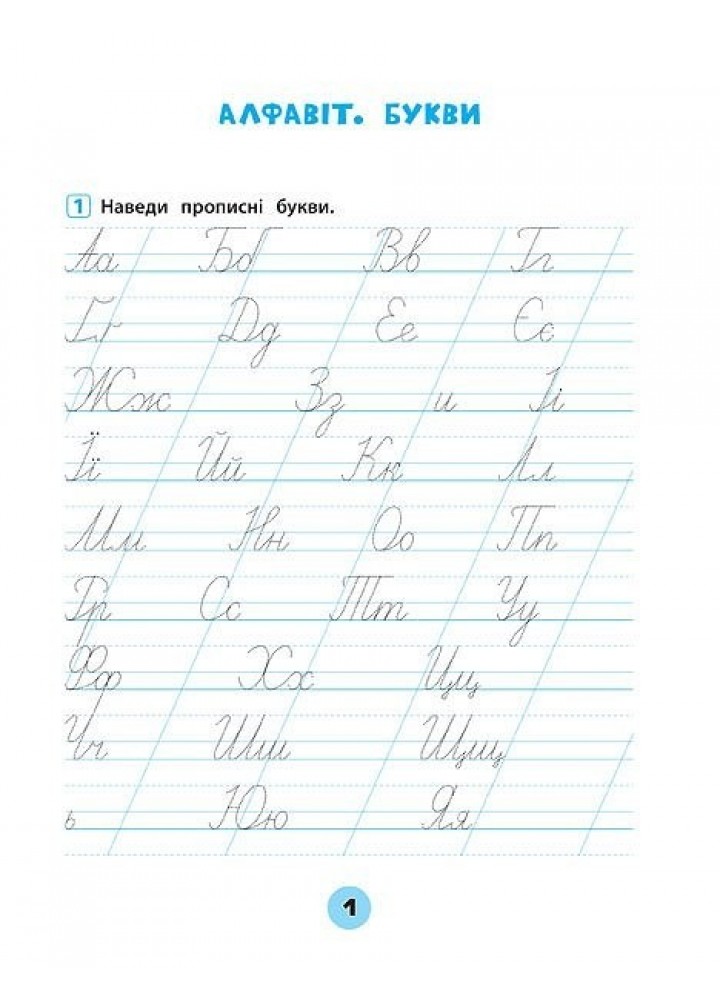 АЛФАВІТ. БУКВИ
1 Наведи прописні букви.
Аа Бб Вв Гг
Ґґ Дд Ее Єє
Жж Зз и Іі
Її Йй Кк Лл
Мм Нн Оо Пп
Рр Сс Тт Уу
Фф Хх Цц
Чч Шш Щщ
ь Юю Яя
1